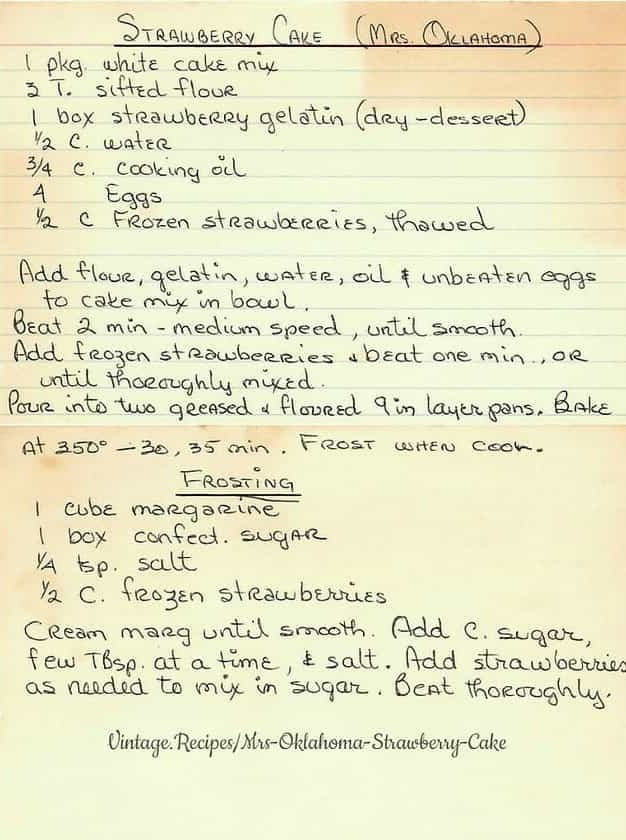 Strawberry Cake (Mrs. Oklahoma)
1 pkg. white cake mix
3 T. sifted flour
1 box strawberry gelatin (dry-dessert)
1/2 C. water
3/4 C. cooking oil
4 Eggs
1/2 C Frozen strawberries, thawed
Add flour, gelatin, water, oil & unbeaten eggs
to cake mix in bowl.
Beat 2 min - medium speed, until smooth.
Add frozen strawberries & beat one min., or
until thoroughly mixed.
Pour into two greased & floured 9 in layer pans. Bake
At 350° - 30, 35 min. Frost when cool.
Frosting
1 cube margarine
1 box confect. sugar
1/4 tsp. salt
1/2 C. frozen strawberries
Cream marg until smooth. Add C. sugar,
few Tbsp. at a time, & salt. Add strawberries
as needed to mix in sugar. Beat thoroughly.
Vintage.Recipes/Mrs-Oklahoma-Strawberry-Cake